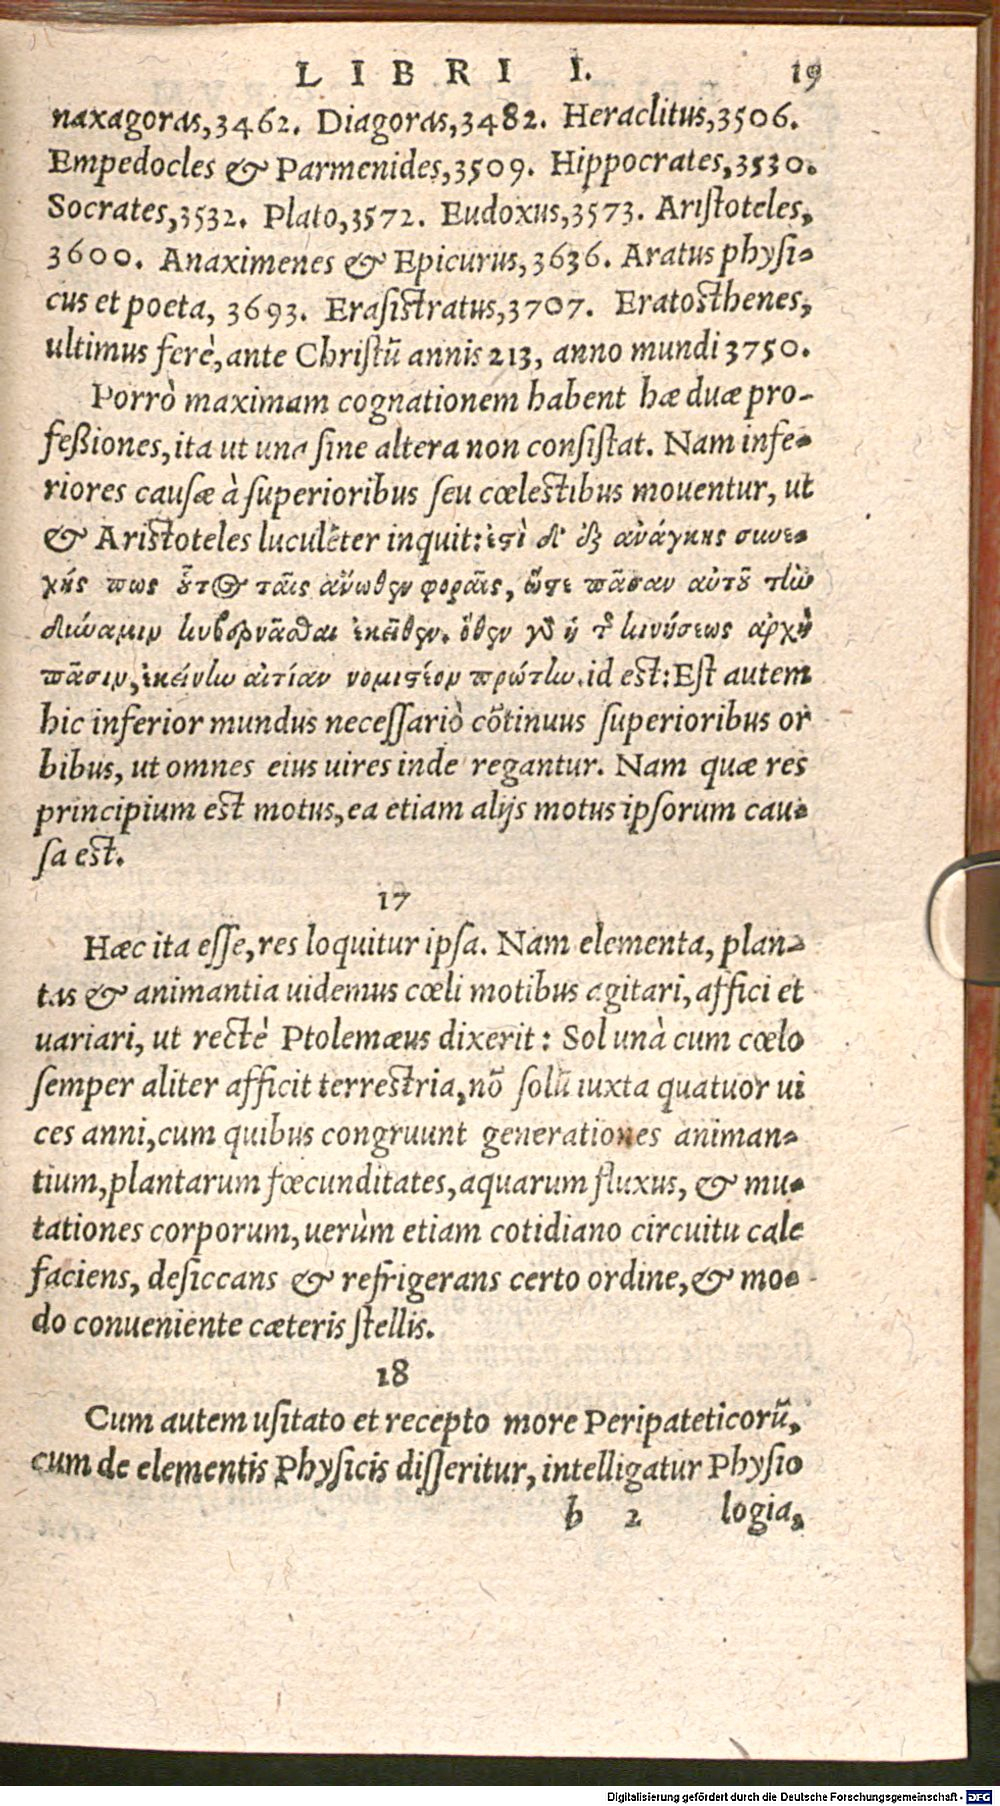 LIBRI I. 19
naxagoras, 3462. Diagoras, 3482. Heraclitus, 3506.
Empedocles & Parmenides, 3509. Hippocrates, 3530.
Socrates, 3532. Plato, 3572. Eudoxus, 3573. Aristoteles,
3600. Anaximenes & Epicurus, 3636. Aratus physi-
cus et poeta, 3693. Erasistratus, 3707. Eratosthenes,
ultimus ferè, ante Christũ annis 213, anno mundi 3750.
Porrò maximam cognationem habent hæ duæ pro-
feßiones, ita ut una sine altera non consistat. Nam infe-
riores causæ à superioribus seu cœlestibus mouentur, ut
& Aristoteles luculẽter inquit: ἐστὶ δ' ἐξ ἀνάγκης συνε-
χής πως οὗτος ταῖς ἄνωθεν φοραῖς, ὥστε πᾶσαν αὐτοῦ τὴν
δύναμιν κυβερνᾶσθαι ἐκεῖθεν. ὅθεν γὰρ ἡ τῆς κινήσεως ἀρχὴ
πᾶσιν, ἐκείνην αἰτίαν νομιστέον πρώτην. id est: Est autem
hic inferior mundus necessariò cõtinuus superioribus or
bibus, ut omnes eius uires inde regantur. Nam quæ res
principium est motus, ea etiam alijs motus ipsorum cau-
sa est.
17
Hæc ita esse, res loquitur ipsa. Nam elementa, plan-
tas & animantia uidemus cœli motibus agitari, affici et
uariari, ut rectè Ptolemæus dixerit: Sol unà cum cœlo
semper aliter afficit terrestria, nõ solũ iuxta quatuor ui
ces anni, cum quibus congruunt generationes animan-
tium, plantarum fœcunditates, aquarum fluxus, & mu-
tationes corporum, uerùm etiam cotidiano circuitu cale
faciens, desiccans & refrigerans certo ordine, & mo-
do conueniente cæteris stellis.
18
Cum autem usitato et recepto more Peripateticorũ,
cum de elementis Physicis disseritur, intelligatur Physio
b 2 logia,
Digitalisierung gefördert durch die Deutsche Forschungsgemeinschaft - DFG